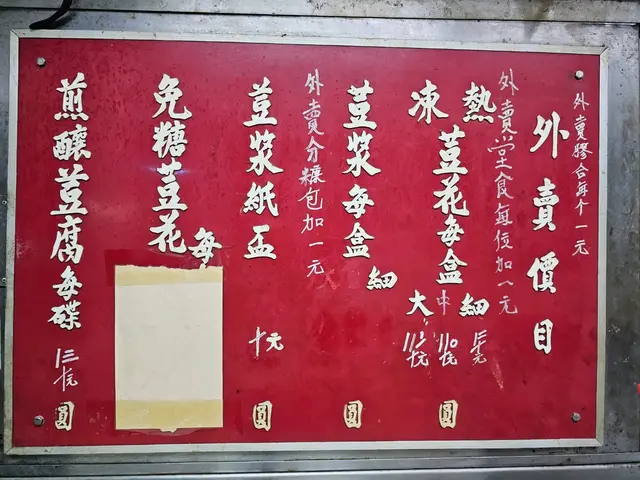 外賣膠合每个一元
外賣價目
外賣堂食每位加一元
熱
凍
荳花每盒
細
中
大
圓
荳漿每盒
細
圓
外賣分糖包加一元
荳漿紙盃
十元
圓
免糖荳花
每
煎釀荳腐每碟
圓